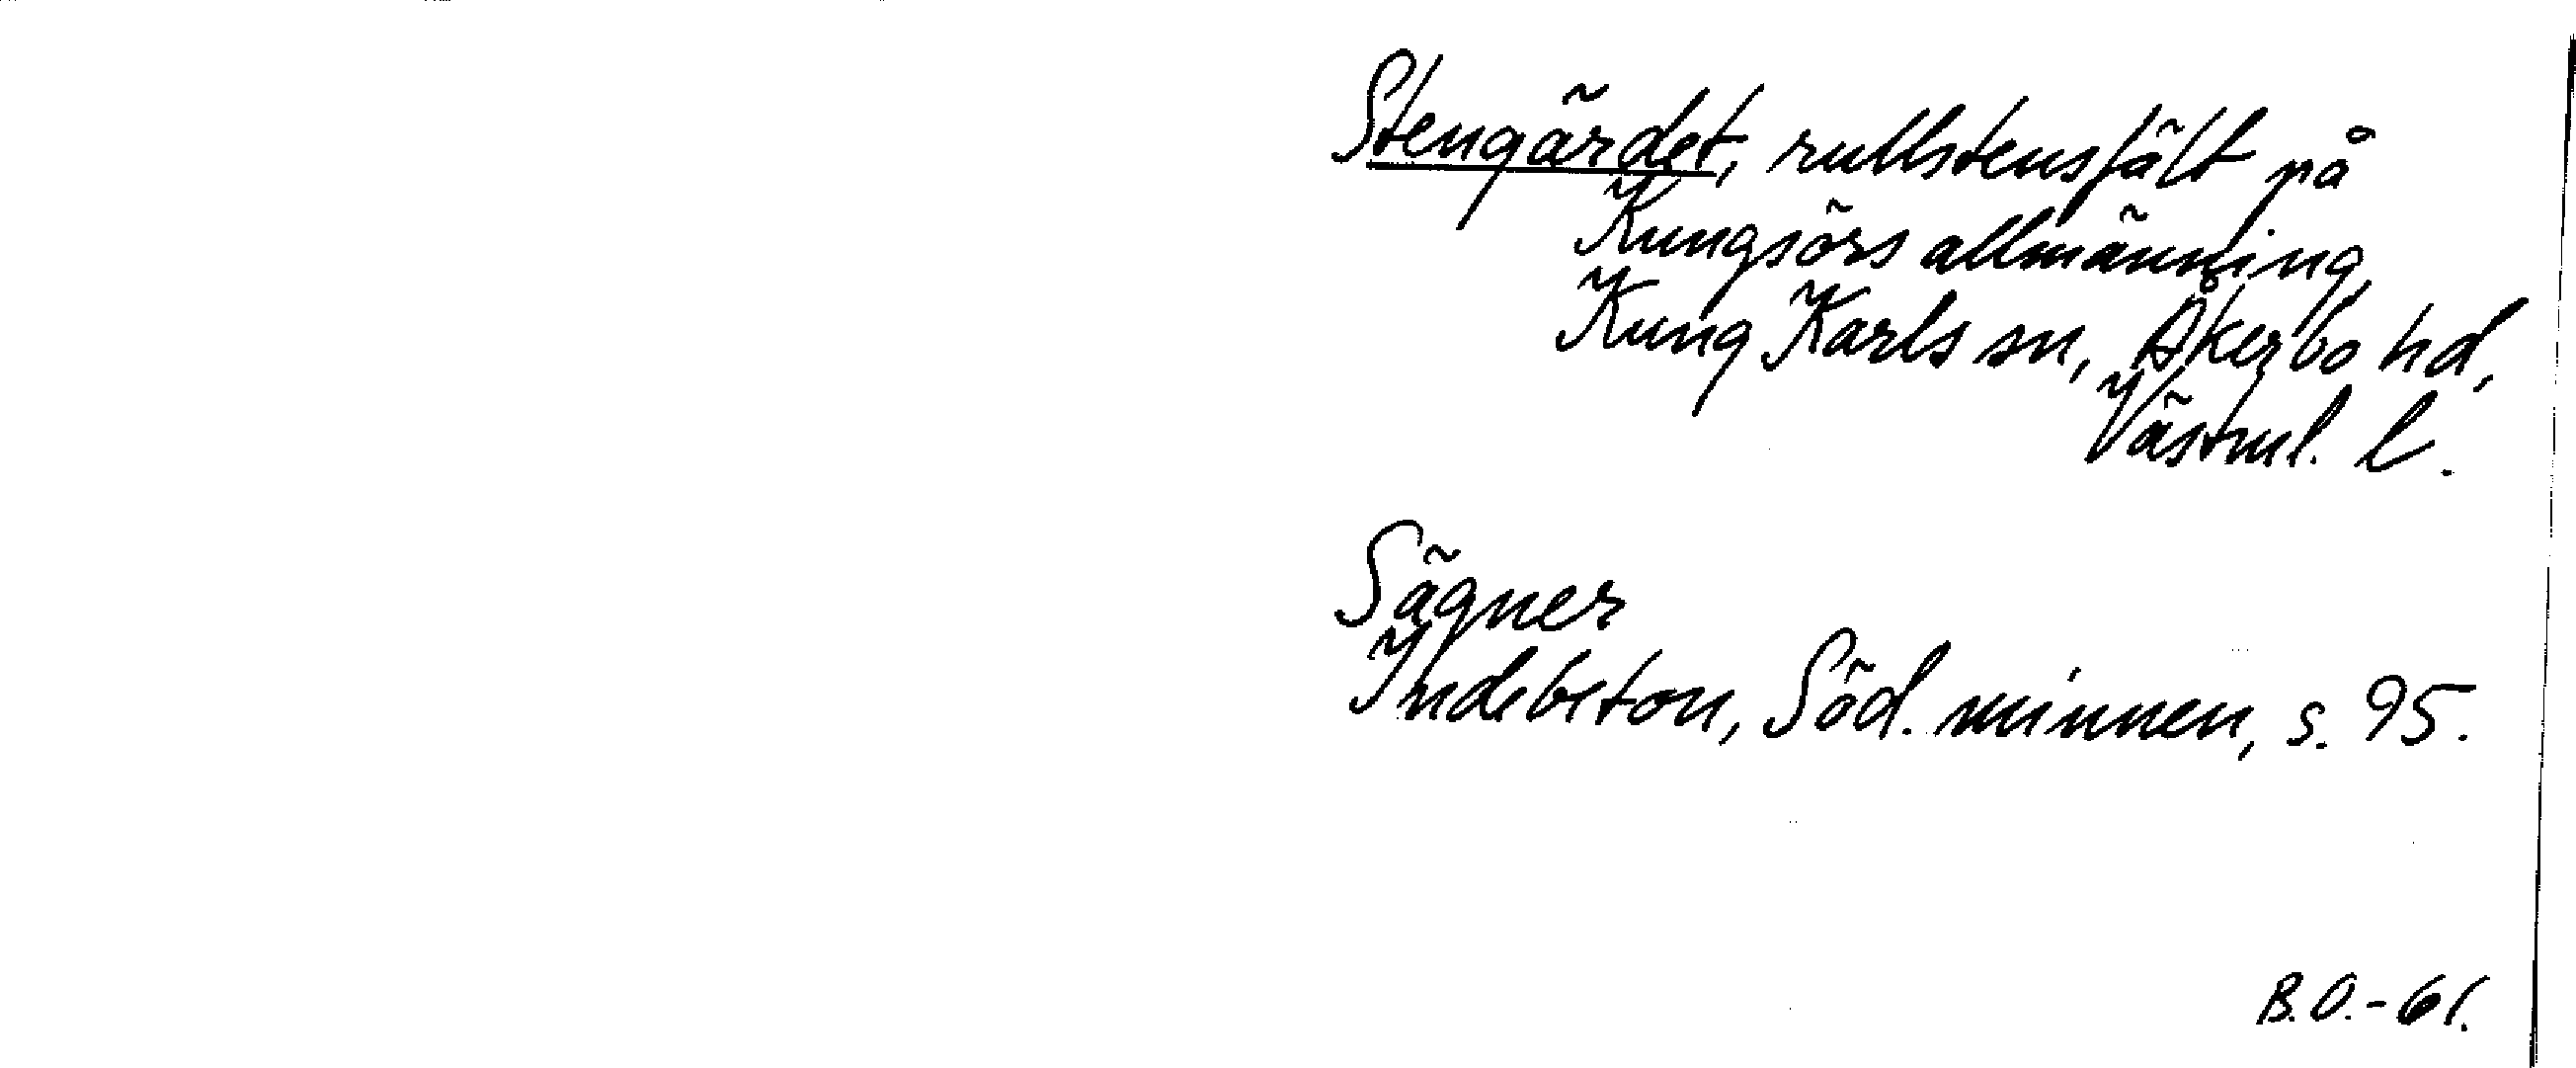 Stengärdet, rullstensfält på
Kungsörs allmänning,
Kung Karls sn, Åkerbo hd,
Västml. l.
Sägner
Indebetou, Söd. minnen, s. 95.
B.O.-61.